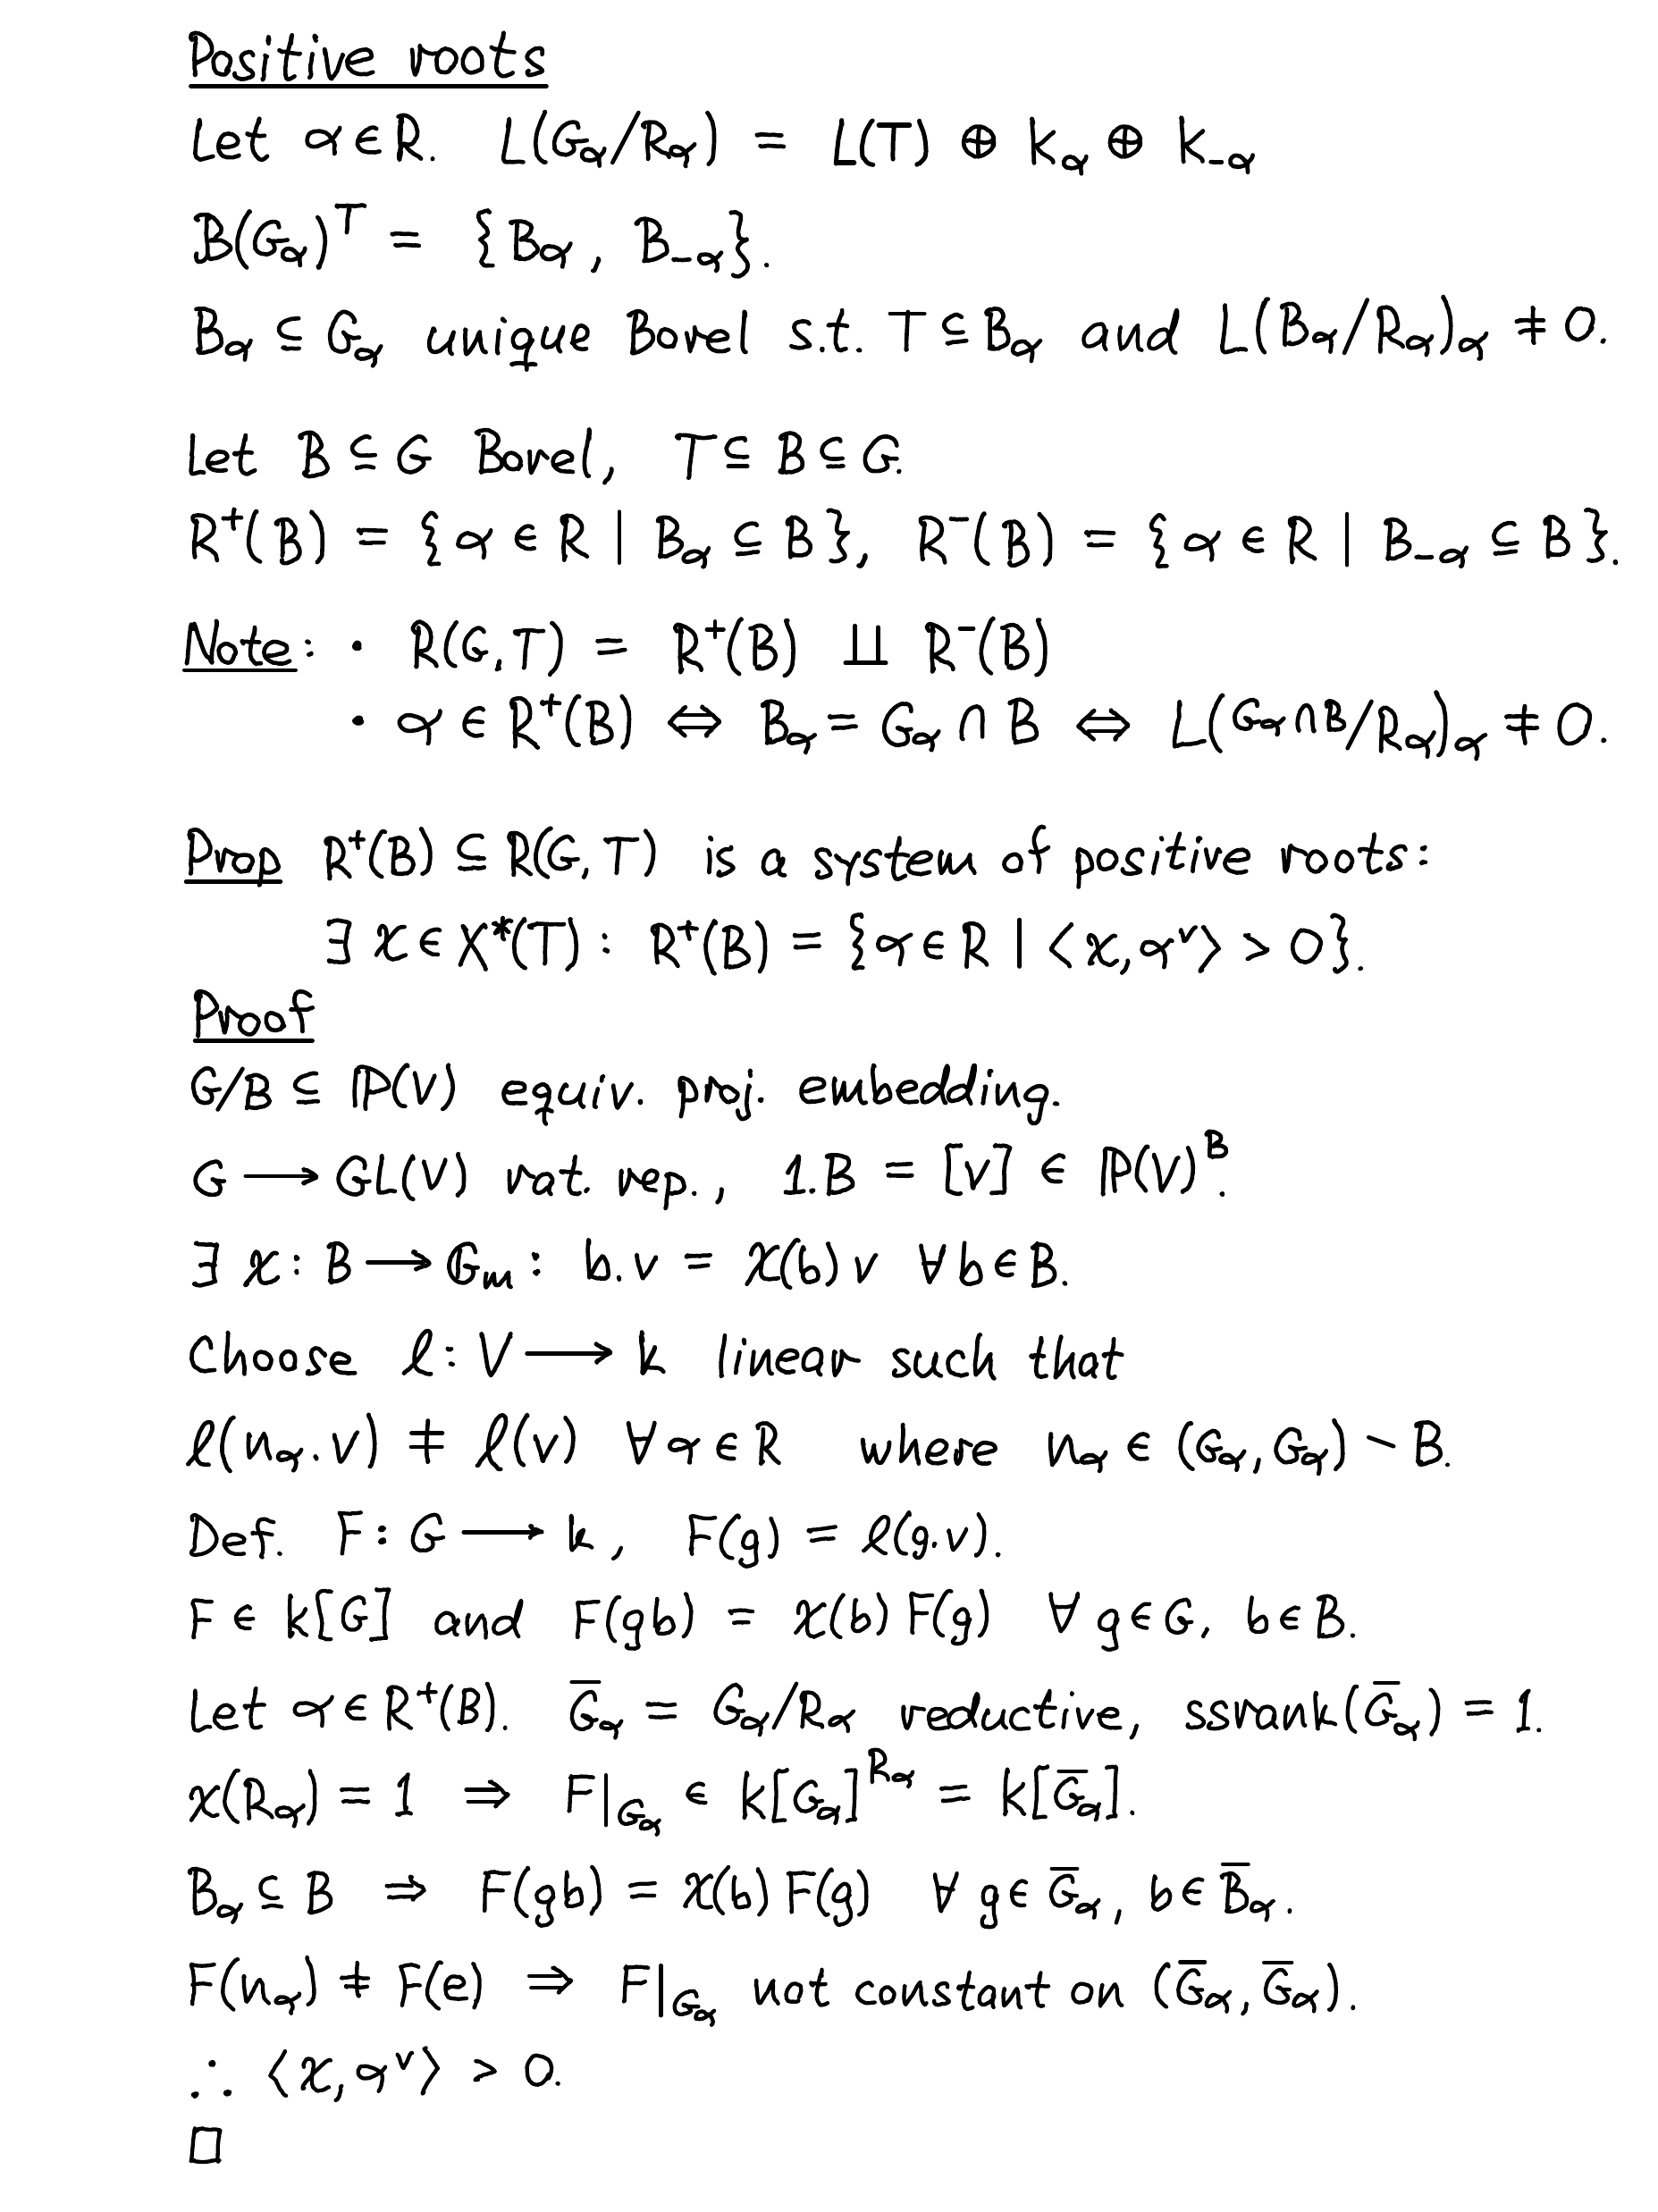 Positive roots
Let α ∈ R. L(G_α/R_α) = L(T) ⊕ k_α ⊕ k_{-α}
𝓑(G_α)^T = {B_α, B_{-α}}.
B_α ⊆ G_α unique Borel s.t. T ⊆ B_α and L(B_α/R_α)_α ≠ 0.
Let B ⊆ G Borel, T ⊆ B ⊆ G.
R⁺(B) = {α ∈ R | B_α ⊆ B}, R⁻(B) = {α ∈ R | B_{-α} ⊆ B}.
Note: • R(G,T) = R⁺(B) ⨿ R⁻(B)
• α ∈ R⁺(B) ⇔ B_α = G_α ∩ B ⇔ L(G_α∩B/R_α)_α ≠ 0.
Prop R⁺(B) ⊆ R(G,T) is a system of positive roots:
∃ χ ∈ X*(T) : R⁺(B) = {α ∈ R | ⟨χ, α^∨⟩ > 0}.
Proof
G/B ⊆ ℙ(V) equiv. proj. embedding.
G ⟶ GL(V) rat. rep., 1.B = [v] ∈ ℙ(V)^B.
∃ χ : B ⟶ 𝔾_m : b.v = χ(b) v ∀ b ∈ B.
Choose ℓ : V ⟶ k linear such that
ℓ(n_α.v) ≠ ℓ(v) ∀ α ∈ R where n_α ∈ (G_α, G_α) ∖ B.
Def. F : G ⟶ k, F(g) = ℓ(g.v).
F ∈ k[G] and F(gb) = χ(b) F(g) ∀ g ∈ G, b ∈ B.
Let α ∈ R⁺(B). Ḡ_α = G_α/R_α reductive, ssrank(Ḡ_α) = 1.
χ(R_α) = 1 ⇒ F|_{G_α} ∈ k[G_α]^{R_α} = k[Ḡ_α].
B_α ⊆ B ⇒ F(gb) = χ(b) F(g) ∀ g ∈ Ḡ_α, b ∈ B̄_α.
F(n_α) ≠ F(e) ⇒ F|_{G_α} not constant on (Ḡ_α, Ḡ_α).
∴ ⟨χ, α^∨⟩ > 0.
□